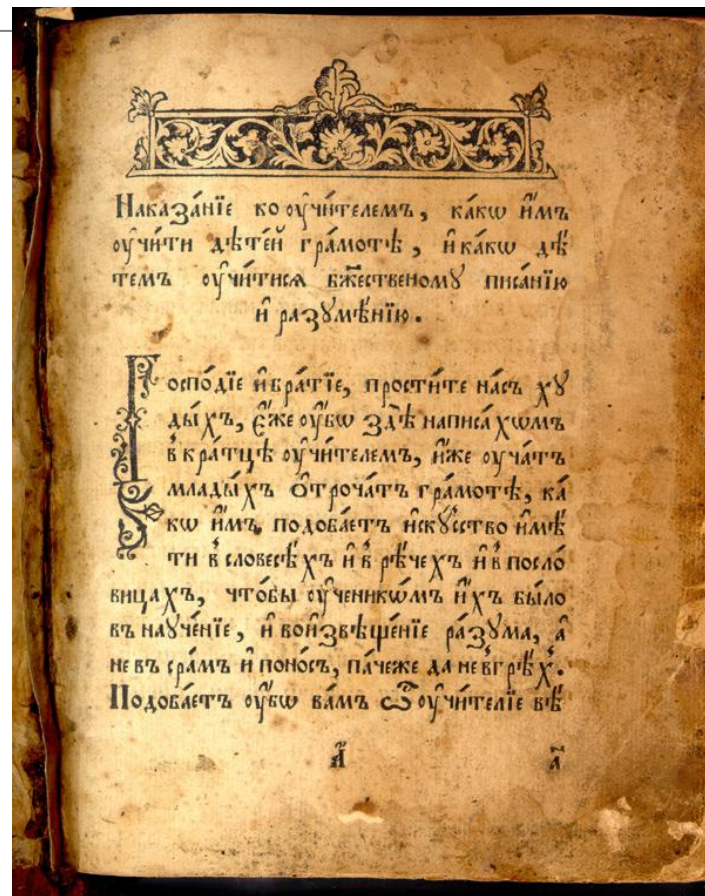 Наказа́нїе ко оучи́телемъ, ка́кѡ и҆̀мъ
оучи́ти дѣте́й гра́мотѣ, и҆ ка́кѡ дѣ́
темъ оучи́тися бж҃е́ственомꙋ писа́нїю
и҆ разꙋмѣ́нїю.
Госпо́дїе и҆ бра́тїе, прости́те на́съ хꙋ
ды́хъ, є҆́же оу҆́бѡ здѣ̀ написа́хѡмъ
в кра́тцѣ оучи́телемъ, и҆́же оуча́тъ
млады́хъ ѻ҆троча́тъ гра́мотѣ, ка́
кѡ и҆̀мъ подоба́етъ и҆скꙋ́сство и҆мѣ́
ти в словесѣ́хъ и҆ в рѣ́чехъ и҆ в посло́
вицахъ, что́бы оу҆ченикѡ́мъ и҆́хъ бы́ло
въ наꙋче́нїе, и҆ во и҆звѣще́нїе ра́зꙋма, а҆
не въ сра́мъ и҆ поно́съ, па́чеже да не в грѣ́хъ.
Подоба́етъ оу҆́бѡ ва́мъ ѽ оучи́телїе вѣ́
а҃ а҃